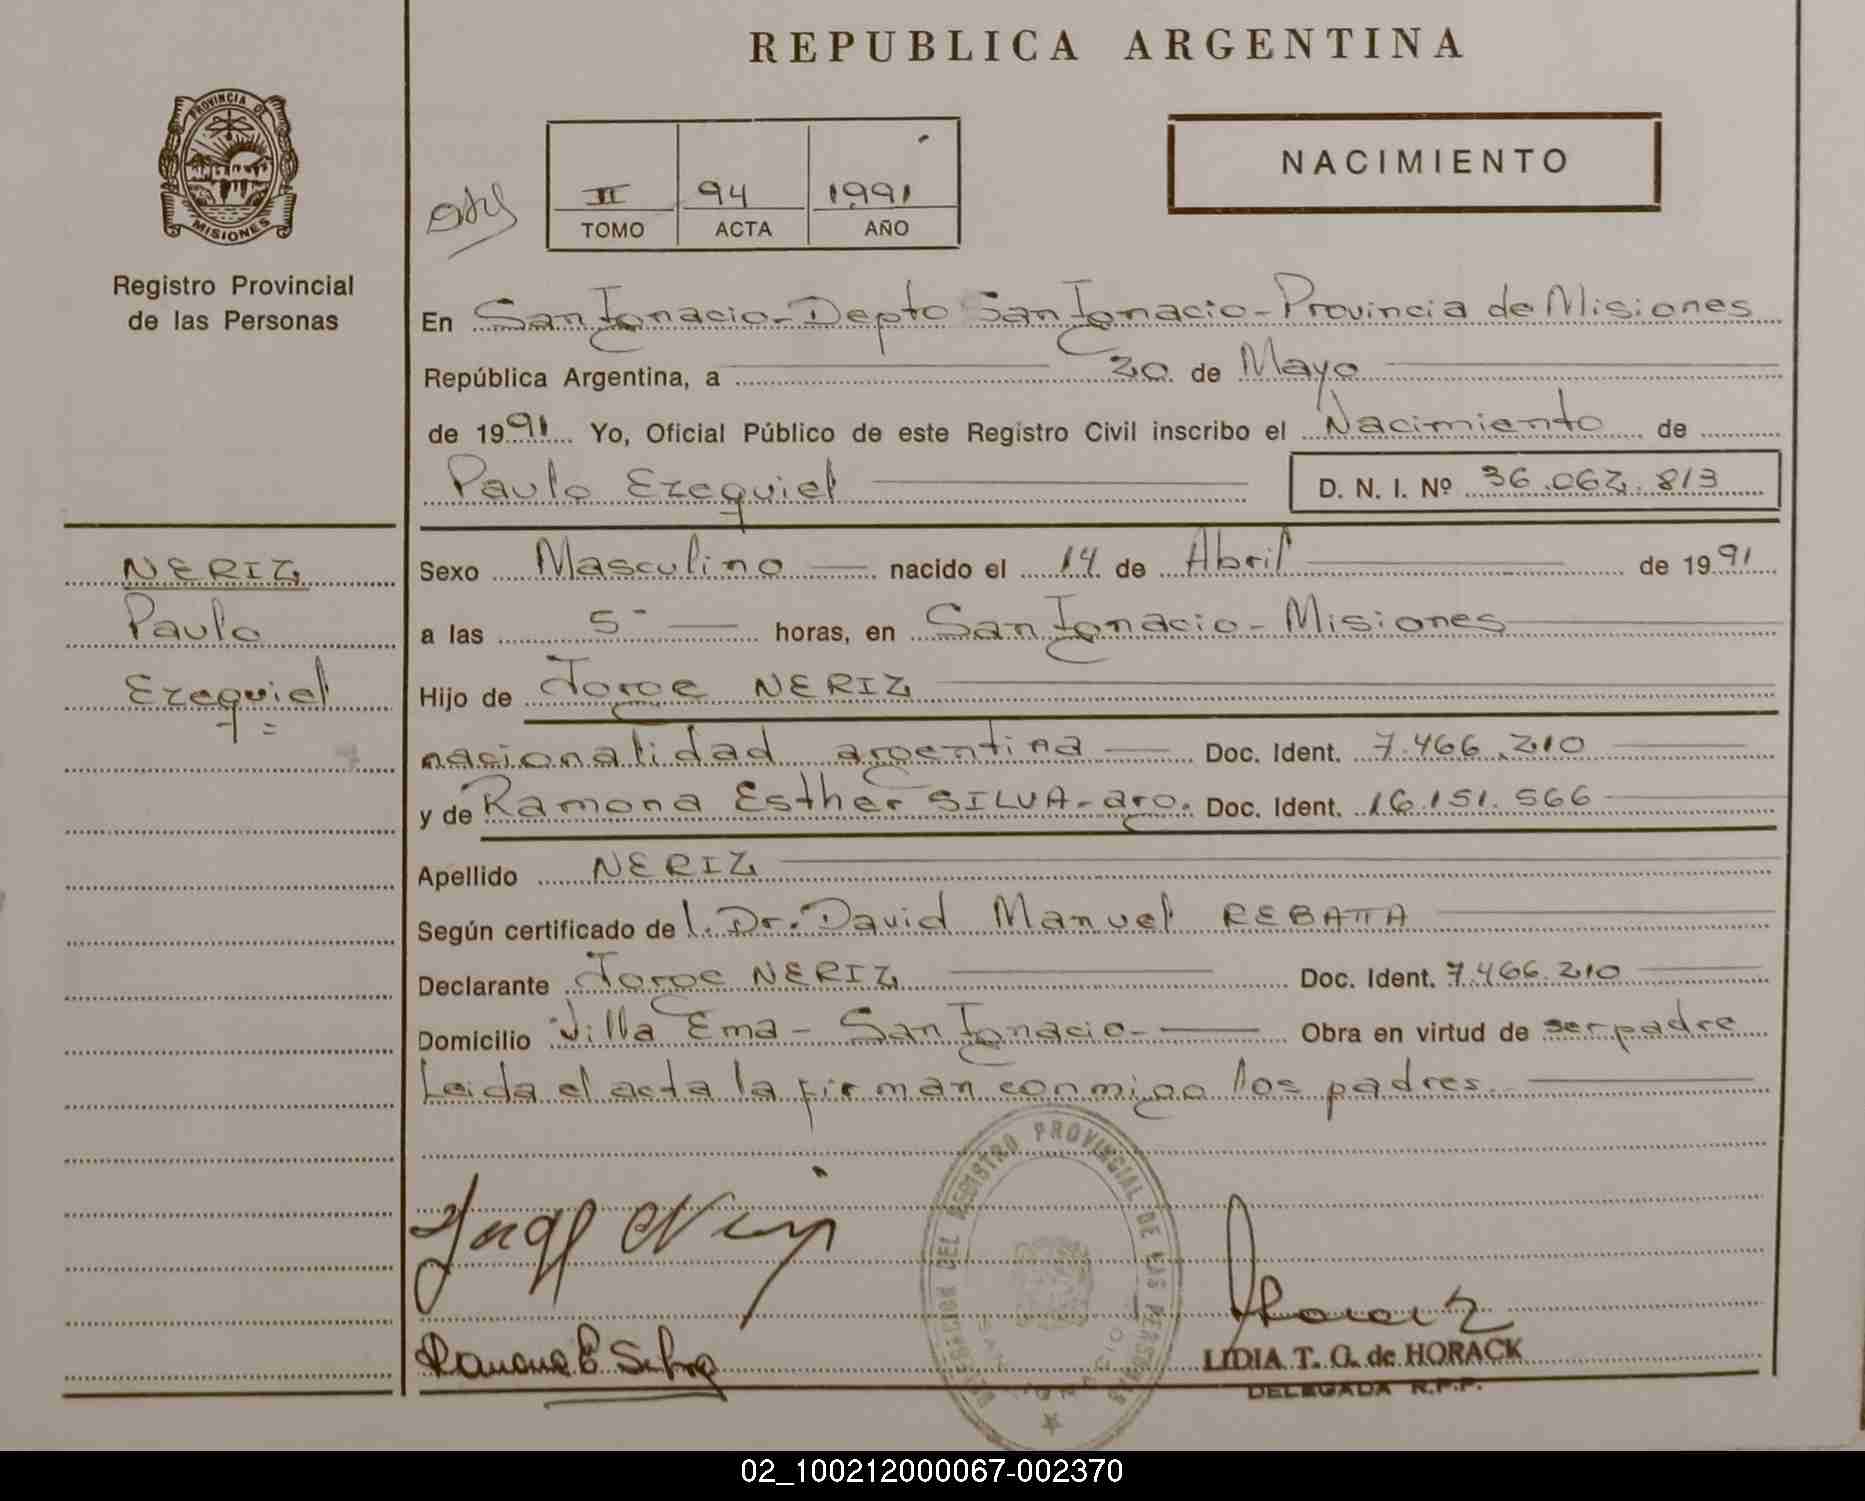 REPUBLICA ARGENTINA
PROVINCIA DE
MISIONES
Registro Provincial
de las Personas
II 94 1991
TOMO ACTA AÑO
NACIMIENTO
En San Ignacio - Depto San Ignacio - Provincia de Misiones
República Argentina, a 20 de Mayo
de 1991 Yo, Oficial Público de este Registro Civil inscribo el Nacimiento de
Paulo Ezequiel D. N. I. Nº 36.062.813
NERIZ
Paulo
Ezequiel
Sexo Masculino nacido el 14 de Abril de 1991
a las 5 horas, en San Ignacio - Misiones
Hijo de Jorge NERIZ
nacionalidad argentina Doc. Ident. 7.466.210
y de Ramona Esther SILVA - arg. Doc. Ident. 16.151.566
Apellido NERIZ
Según certificado de l. Dr. David Manuel REBATTA
Declarante Jorge NERIZ Doc. Ident. 7.466.210
Domicilio Villa Ema - San Ignacio - Obra en virtud de ser padre
Leida el acta la firman conmigo los padres.
DELEGACION DEL REGISTRO PROVINCIAL DE LAS PERSONAS
Ramona E Silva
Horack
LIDIA T. G. de HORACK
DELEGADA R.P.P.
02_100212000067-002370